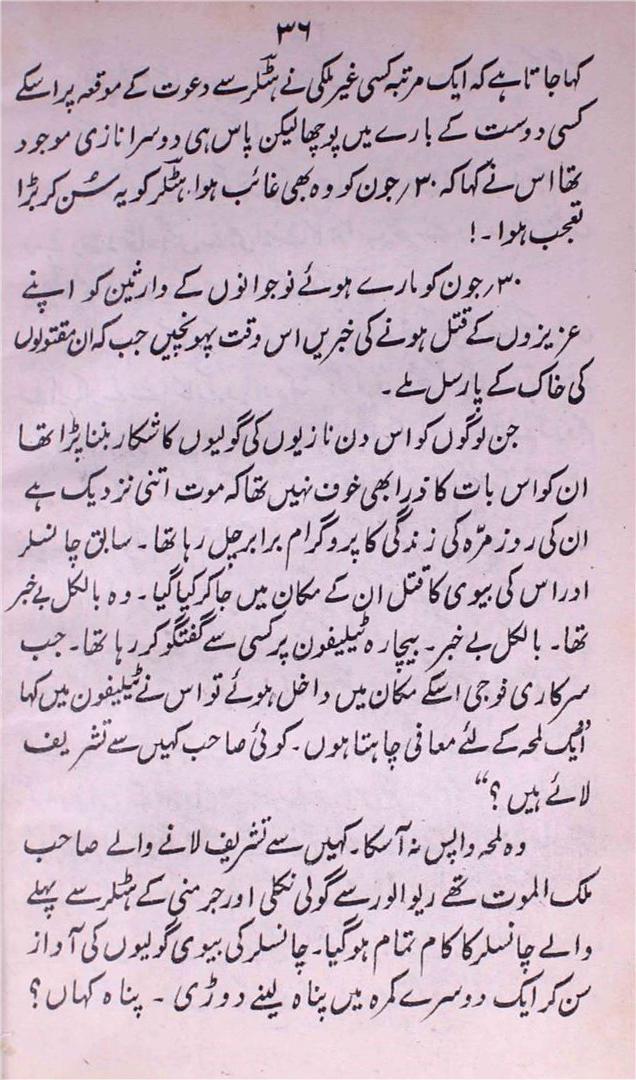 ۳۶
کہا جاتا ہے کہ ایک مرتبہ کسی غیر ملکی نے ہٹلر سے دعوت کے موقعہ پر اسکے
کسی دوست کے بارے میں پوچھا لیکن پاس ہی دوسرا نازی موجود
تھا اس نے کہا کہ ۳۰؍جون کو وہ بھی غائب ہوا، ہٹلر کو یہ سُن کر بڑا
تعجب ہوا ۔!
۳۰؍جون کو مارے ہوئے نوجوانوں کے وارثین کو اپنے
عزیزوں کے قتل ہونے کی خبریں اس وقت پہونچیں جب کہ ان مقتولوں
کی خاک کے پارسل ملے ۔
جن لوگوں کو اس دن نازیوں کی گولیوں کا شکار بننا پڑا تھا
ان کو اس بات کا ذرا بھی خوف نہیں تھا کہ موت اتنی نزدیک ہے
ان کی روز مرّہ کی زندگی کا پروگرام برابر چل رہا تھا ۔ سابق چانسلر
اور اس کی بیوی کا قتل ان کے مکان میں جا کر کیا گیا ۔ وہ بالکل بے خبر
تھا ۔ بالکل بے خبر ۔ بیچارہ ٹیلیفون پر کسی سے گفتگو کر رہا تھا ۔ جب
سرکاری فوجی اسکے مکان میں داخل ہوئے تو اس نے ٹیلیفون میں کہا
”ایک لمحہ کے لئے معافی چاہتا ہوں ۔ کوئی صاحب کہیں سے تشریف
لائے ہیں ؟“
وہ لمحہ واپس نہ آسکا ۔ کہیں سے تشریف لانے والے صاحب
ملک الموت تھے ریوالور سے گولی نکلی اور جرمنی کے ہٹلر سے پہلے
والے چانسلر کا کام تمام ہو گیا ۔ چانسلر کی بیوی گولیوں کی آواز
سن کر ایک دوسرے کمرہ میں پناہ لینے دوڑی ۔ پناہ کہاں ؟